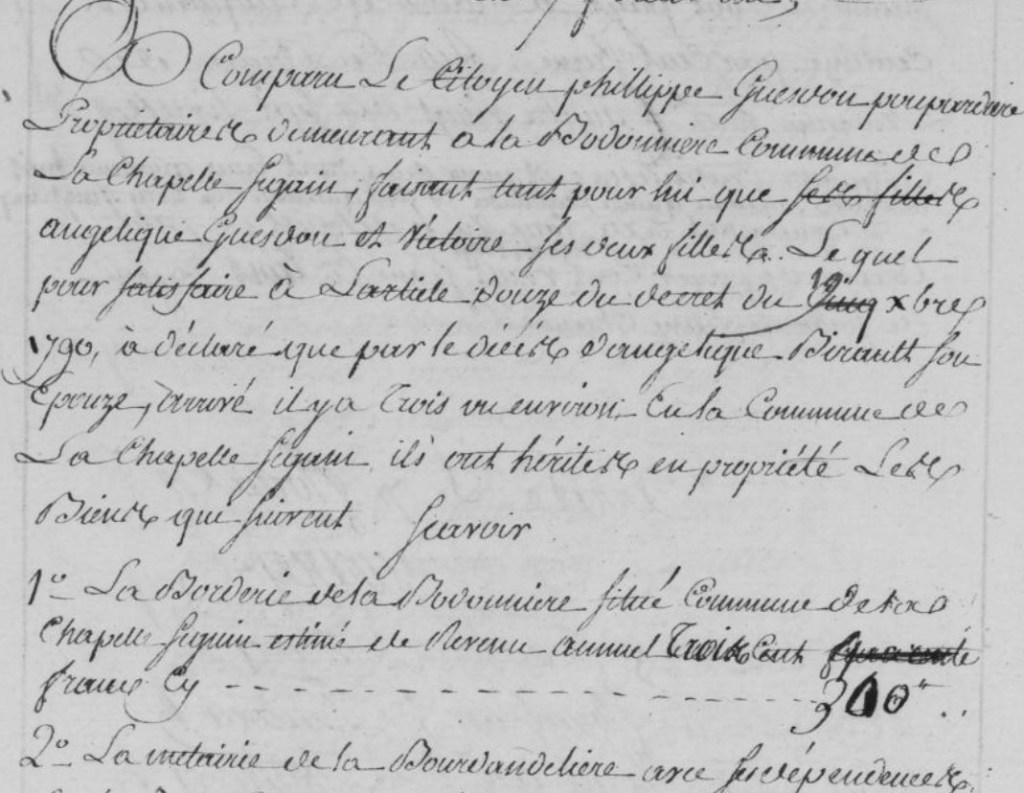 Comparu Le Citoyen phillippe Guesdon propriaire
Proprietaire demeurant a la Bodonniere Commune de
La Chapelle Seguin, faisant tant pour lui que ses filles
angelique Guesdon et Victoire ses deux filles. Le quel
pour satisfaire a L'article douze du decret du 19 xbre
1790, à déclaré que par le décès d'angelique Birault son
Epouze, arrivé il y a Trois ou environ En la Commune de
La Chapelle Seguin, ils ont hérités en propriété Les
Biens que suivent Scavoir
1º La Borderie de la Bodonniere situé Commune de la
Chapelle Seguin estimé de Revenu annuel Trois Cent
francs Cy 300"
2º La metairie de la Bourdandeliere avec ses dépendences